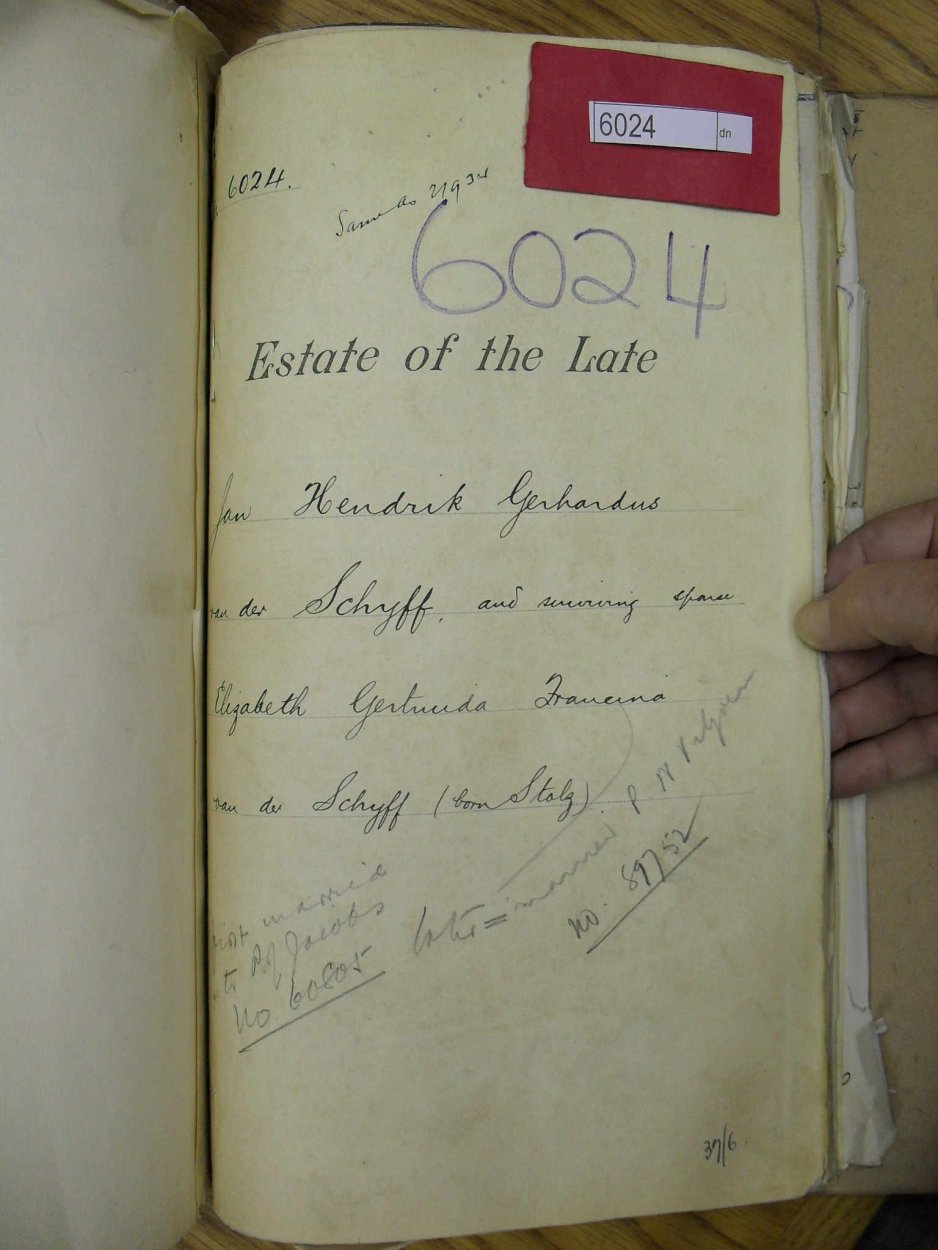 6024 dn
6024.
Same as
6024
Estate of the Late
Jan Hendrik Gerhardus
van der Schyff, and surviving spouse
Elizabeth Gertruida Francina
van der Schyff (born Stolz)
later = married P
no. 89752
married
to Jacobs
No 60805
37/6